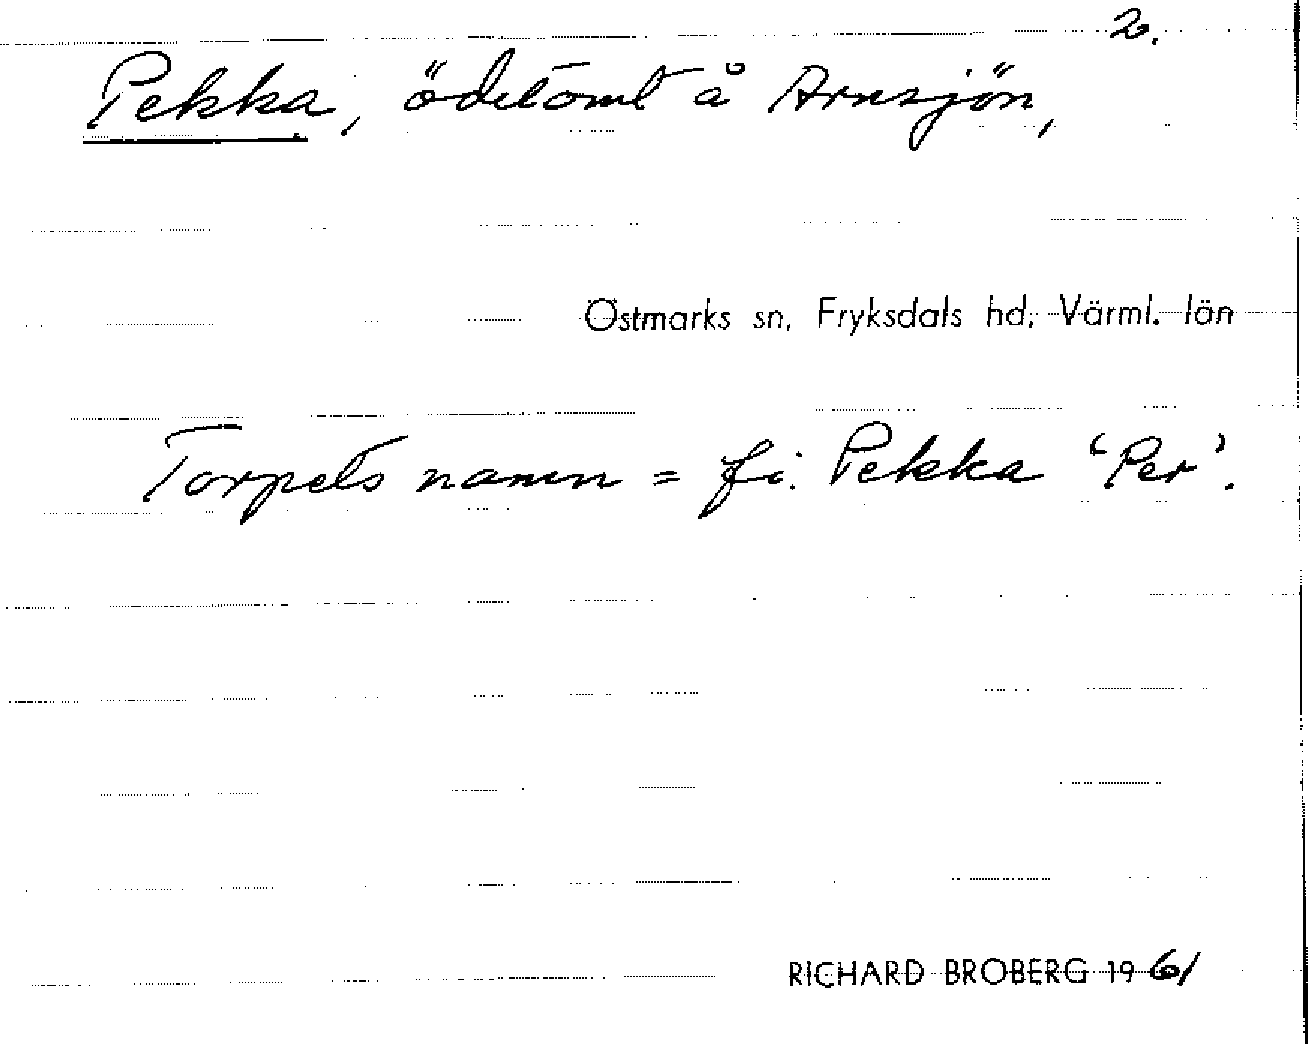 2.
Pekka, ödetomt å Arnsjön,
Östmarks sn, Fryksdals hd, Värml. län
Torpets namn = fi. Pekka 'Per'.
RICHARD BROBERG 1961